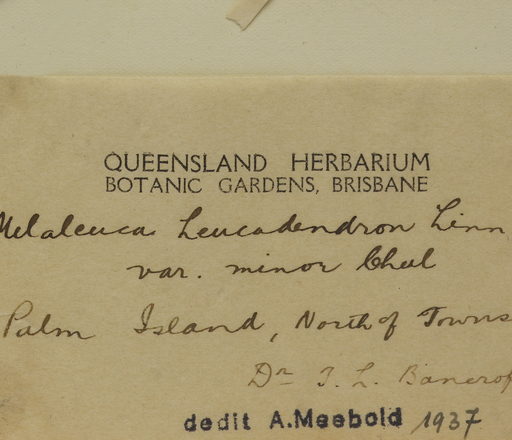 QUEENSLAND HERBARIUM
BOTANIC GARDENS, BRISBANE
Melaleuca Leucadendron Linn
var. minor Chel
Palm Island, North of Towns
Dr T. L. Bancrof
dedit A.Meebold 1937